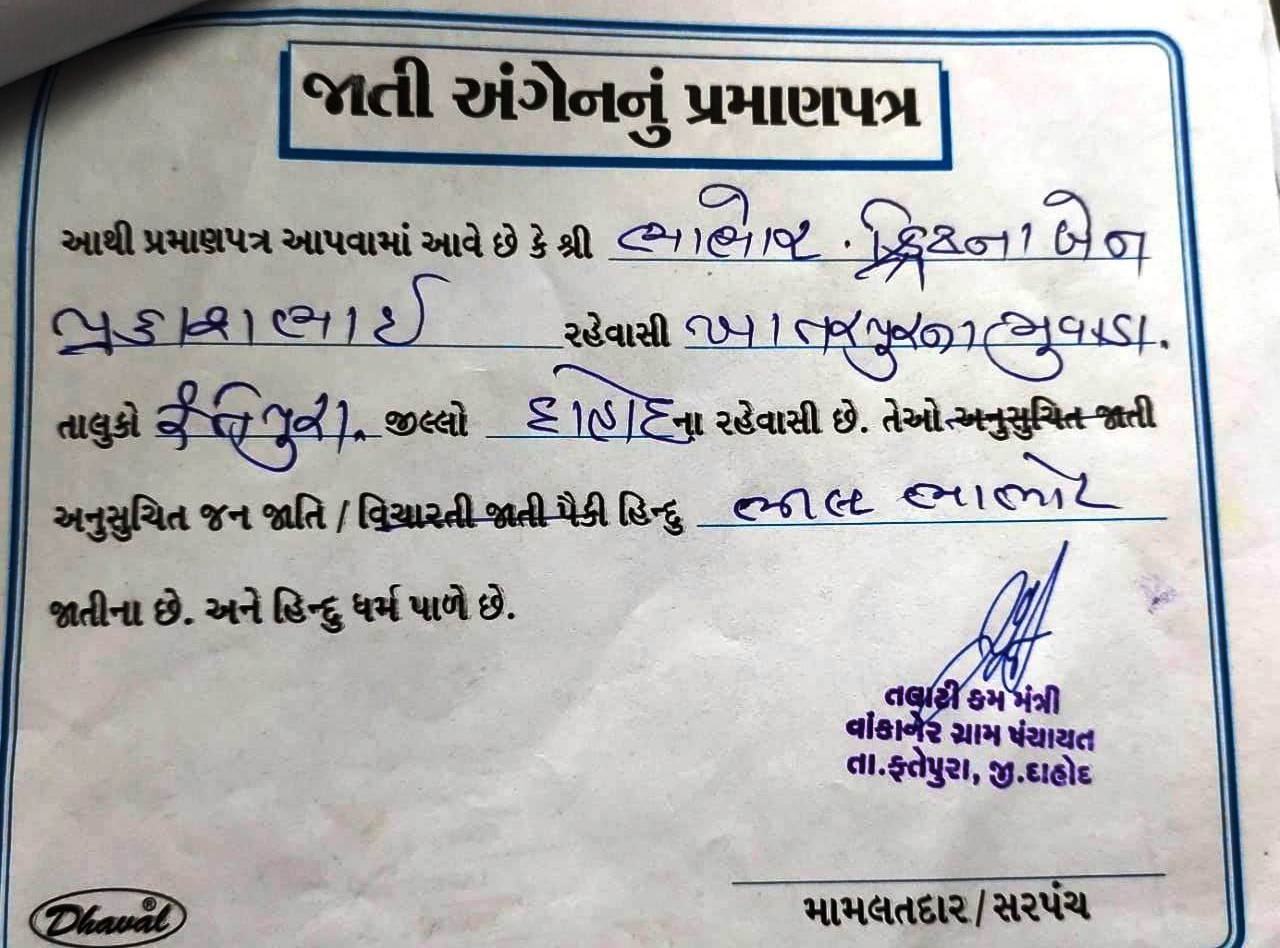 જાતી અંગેનનું પ્રમાણપત્ર
આથી પ્રમાણપત્ર આપવામાં આવે છે કે શ્રી ભાભોર . ક્રિષ્ના બેન
પ્રકાશભાઈ રહેવાસી ખાતરપુરના મુવાડા.
તાલુકો ફતેપુરા. જીલ્લો દાહોદ ના રહેવાસી છે. તેઓ અનુસુચિત જાતી
અનુસુચિત જન જાતિ / વિચારતી જાતી પૈકી હિન્દુ ભીલ ભાભોર
જાતીના છે. અને હિન્દુ ધર્મ પાળે છે.
તલાટી કમ મંત્રી
વાંકાનેર ગ્રામ પંચાયત
તા.ફતેપુરા, જી.દાહોદ
મામલતદાર/સરપંચ
Dhaval®